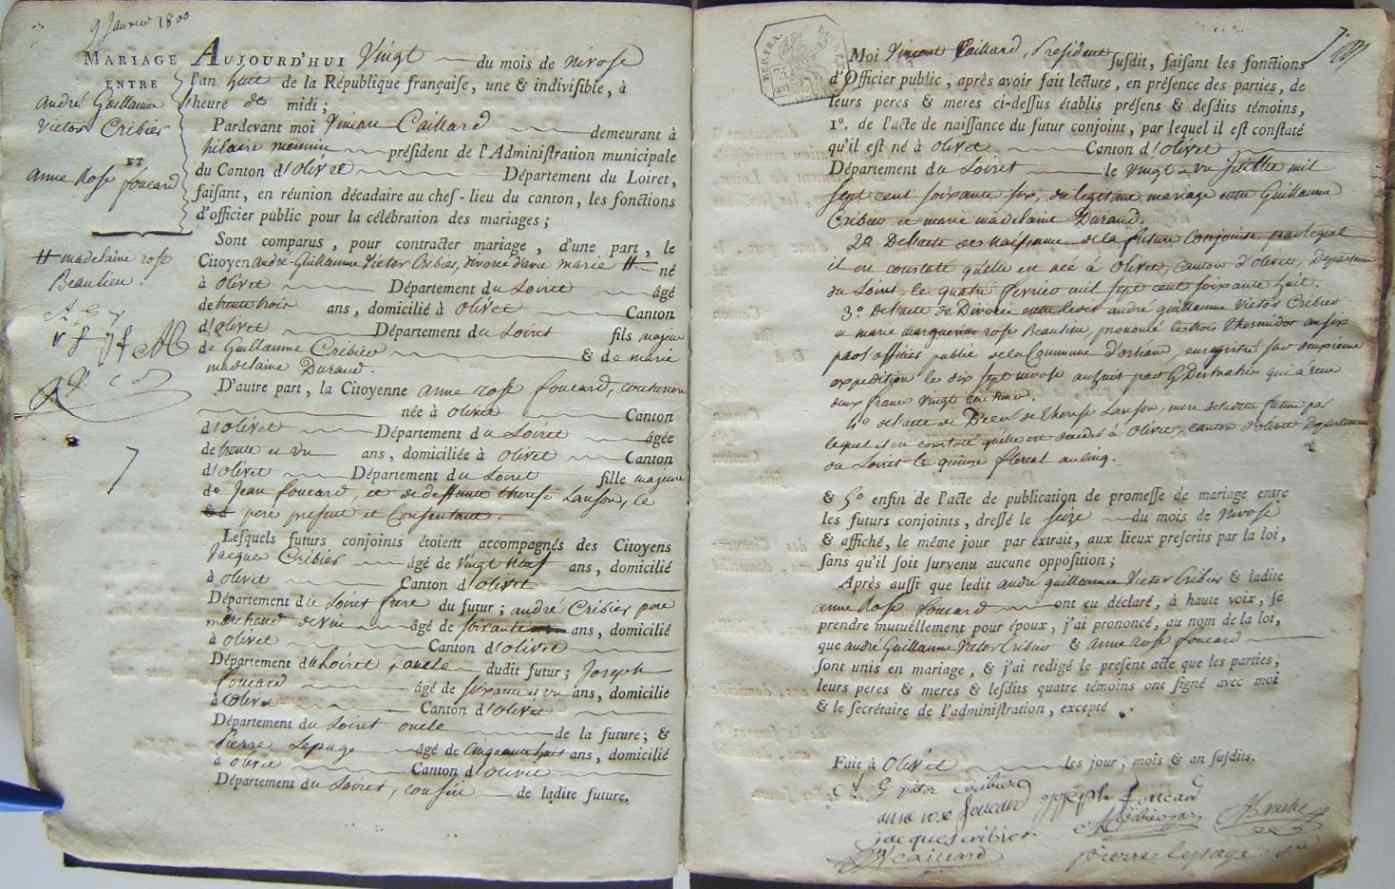 9 Janvier 1800
MARIAGE
ENTRE
André Guillaume
Victor Cribier
ET
Anne Rose foucard
# madelaine rose
Beaulieu.
7
AUJOURD'HUI Vingt du mois de nivose
l'an huit de la République françaiſe, une & indiviſible, à
heure de midi;
Pardevant moi Vincent Caillard demeurant à
hilaire mesmin préſident de l'Adminiſtration municipale
du Canton d'olivet Département du Loiret,
faiſant, en réunion décadaire au chef-lieu du canton, les fonctions
d'officier public pour la célébration des mariages;
Sont comparus, pour contracter mariage, d'une part, le
Citoyen andré Guillaume Victor Cribier, divorcé d'avec marie # né
à olivet Département du Loiret âgé
de trente trois ans, domicilié à olivet Canton
d'olivet Département du Loiret fils majeur
de Guillaume Cribier & de marie
madelaine Durand.
D'autre part, la Citoyenne anne rose foucard, couturiere
née à olivet Canton
d'olivet Département du Loiret âgée
de trente et un ans, domiciliée à olivet Canton
d'olivet Département du Loiret fille majeure
de Jean foucard, et de deffunte therese Lanson, le
pere present et Consentant.
Leſquels futurs conjoints étoient accompagnés des Citoyens
Jacques Cribier âgé de Vingt Neuf ans, domicilié
à olivet Canton d'olivet
Département du Loiret frere du futur; andré Cribier pere
marchand de vin âgé de soixante ans, domicilié
à olivet Canton d'olivet
Département du Loiret, oncle dudit futur; Joseph
foucard âgé de soixante et un ans, domicilié
à olivet Canton d'olivet
Département du Loiret oncle de la future; &
Pierre Lepage âgé de cinquante huit ans, domicilié
à olivet Canton d'olivet
Département du Loiret, cousin de ladite future.
Moi Vincent Caillard, President ſuſdit, faiſant les fonctions
d'Officier public, après avoir fait lecture, en préſence des parties, de
leurs peres & meres ci-deſſus établis préſens & deſdits témoins,
1°. de l'acte de naiſſance du futur conjoint, par lequel il eſt conſtaté
qu'il eſt né à olivet Canton d'olivet
Département du Loiret le vingt un Juillet mil
sept cent soixante six, du legitime mariage entre Guillaume
Cribier et marie madelaine Durand.
2° De l'acte de Naissance de la future Conjointe, par lequel
il est constaté qu'elle est née à Olivet, canton d'olivet, département
du Loiret, le quatre fevrier mil sept cent soixante huit.
3°. De l'acte de Divorce entre ledit andré guillaume Victor Cribier
et marie rose Beaulieu, prononcé le trois thermidor an six
par l'officier public de la Commune d'orléans, enregistré sur
expedition le dix sept nivose an huit par qui a reçu
deux francs vingt centimes.
4° de l'acte de Décès de therese Lanson, mere de ladite future par
lequel il est constaté qu'elle est décédée à Olivet, canton d'olivet Departement
du Loiret le quinze floreal an cinq.
& 5° enfin de l'acte de publication de promeſſe de mariage entre
les futurs conjoints, dreſſé le seize du mois de nivose
& affiché, le même jour par extrait, aux lieux preſcrits par la loi,
ſans qu'il ſoit ſurvenu aucune oppoſition;
Après auſſi que ledit andré guillaume Victor Cribier & ladite
anne Rose foucard ont eu déclaré, à haute voix, ſe
prendre mutuellement pour époux, j'ai prononcé, au nom de la loi,
que andré Guillaume Victor Cribier & anne rose foucard
ſont unis en mariage, & j'ai redigé le preſent acte que les parties,
leurs peres & meres & leſdits quatre témoins ont ſigné avec moi
& le ſecrétaire de l'adminiſtration, excepté
Fait à Olivet les jour, mois & an ſuſdits.
A G victor cribier
anne rose foucard joseph foucard
jacques cribier
V caillard pierre lepage